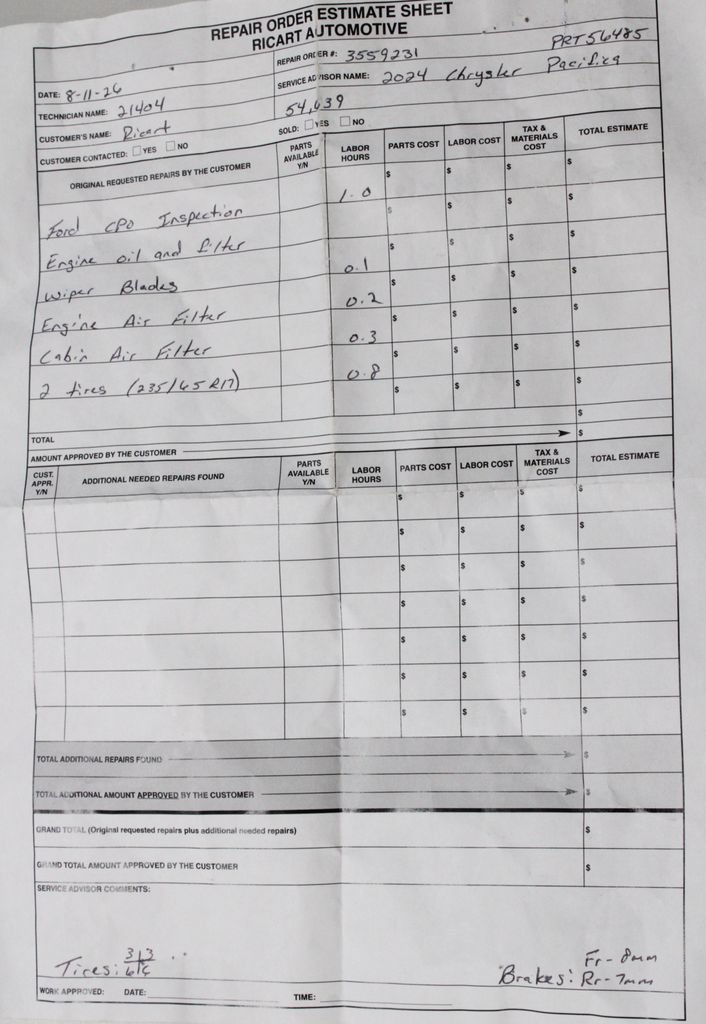 REPAIR ORDER ESTIMATE SHEET
RICART AUTOMOTIVE
REPAIR ORDER #: 3559231 PRT56485
DATE: 8-11-26
SERVICE ADVISOR NAME: 2024 Chrysler Pacifica
TECHNICIAN NAME: 21404
54,639
CUSTOMER'S NAME: Ricart
SOLD: YES NO
CUSTOMER CONTACTED: YES NO
ORIGINAL REQUESTED REPAIRS BY THE CUSTOMER PARTS AVAILABLE Y/N LABOR HOURS PARTS COST LABOR COST TAX & MATERIALS COST TOTAL ESTIMATE
$ $ $ $
Ford CPO Inspection 1.0 $ $ $ $
Engine oil and filter $ $ $ $
Wiper Blades 0.1 $ $ $ $
Engine Air Filter 0.2 $ $ $ $
Cabin Air Filter 0.3 $ $ $ $
2 tires (235/65R17) 0.8 $ $ $ $
TOTAL $
AMOUNT APPROVED BY THE CUSTOMER $
CUST. APPR. Y/N ADDITIONAL NEEDED REPAIRS FOUND PARTS AVAILABLE Y/N LABOR HOURS PARTS COST LABOR COST TAX & MATERIALS COST TOTAL ESTIMATE
$ $ $ $
$ $ $ $
$ $ $ $
$ $ $ $
$ $ $ $
$ $ $ $
$ $ $ $
TOTAL ADDITIONAL REPAIRS FOUND $
TOTAL ADDITIONAL AMOUNT APPROVED BY THE CUSTOMER $
GRAND TOTAL (Original requested repairs plus additional needed repairs) $
GRAND TOTAL AMOUNT APPROVED BY THE CUSTOMER $
SERVICE ADVISOR COMMENTS:
3 3 Fr - 8mm
Tires: 6 6 Brakes: Rr - 7mm
WORK APPROVED: DATE: TIME: